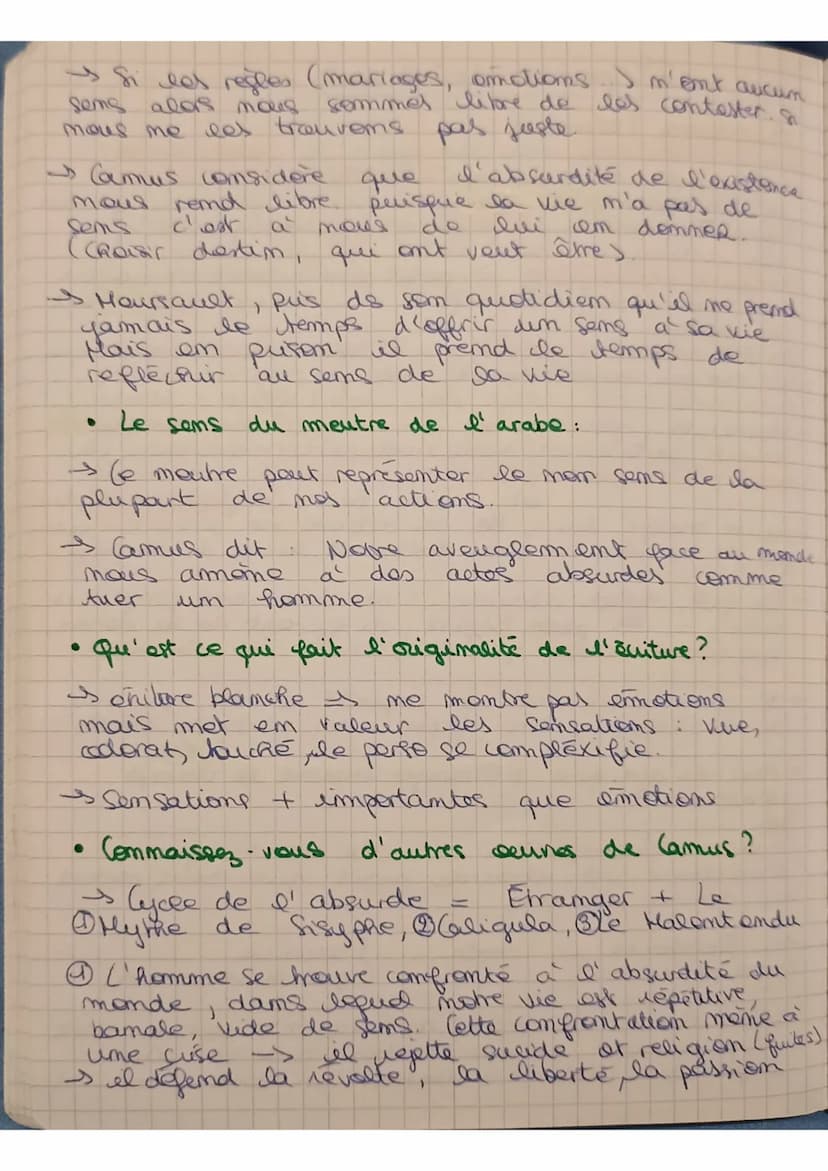 → Si les règles (mariages, émotions..) n'ont aucun
sens alors nous sommes libre de les contester. si
nous ne les trouvons pas juste.
→ Camus considère que l'absurdité de l'existence
nous rend libre puisque la vie n'a pas de
sens c'est à nous de lui en donner.
(Choisir destin, qui ont veut être).
→ Meursault, pris ds son quotidien qu'il ne prend
jamais le temps d'offrir un sens à sa vie
Mais en prison il prend le temps de
refléchir au sens de sa vie
• Le sens du meutre de l'arabe :
→ Ce meutre peut représenter le non sens de la
plupart de nos actions.
→ Camus dit : Notre aveuglement face au monde
nous amène à des actes absurdes comme
tuer un homme.
• Qu'est ce qui fait l'originalité de l'écriture ?
→ écriture blanche => ne montre pas émotions
mais met en valeur les sensations : vue,
odorat, touché, le perso se compléxifie.
→ Sensations + importantes que émotions
• Connaissez-vous d'autres oeuvres de Camus ?
→ Cycle de l'absurde = Étranger + Le
① Mythe de Sisyphe, ② Caligula, ③ Le Malentendu
① L'homme se trouve confronté à l'absurdité du
monde, dans lequel notre vie est répétitive,
banale, vide de sens. Cette confrontation mène à
une crise → il rejette suicide et religion (fuites)
→ il défend la révolte, la liberté, la passion